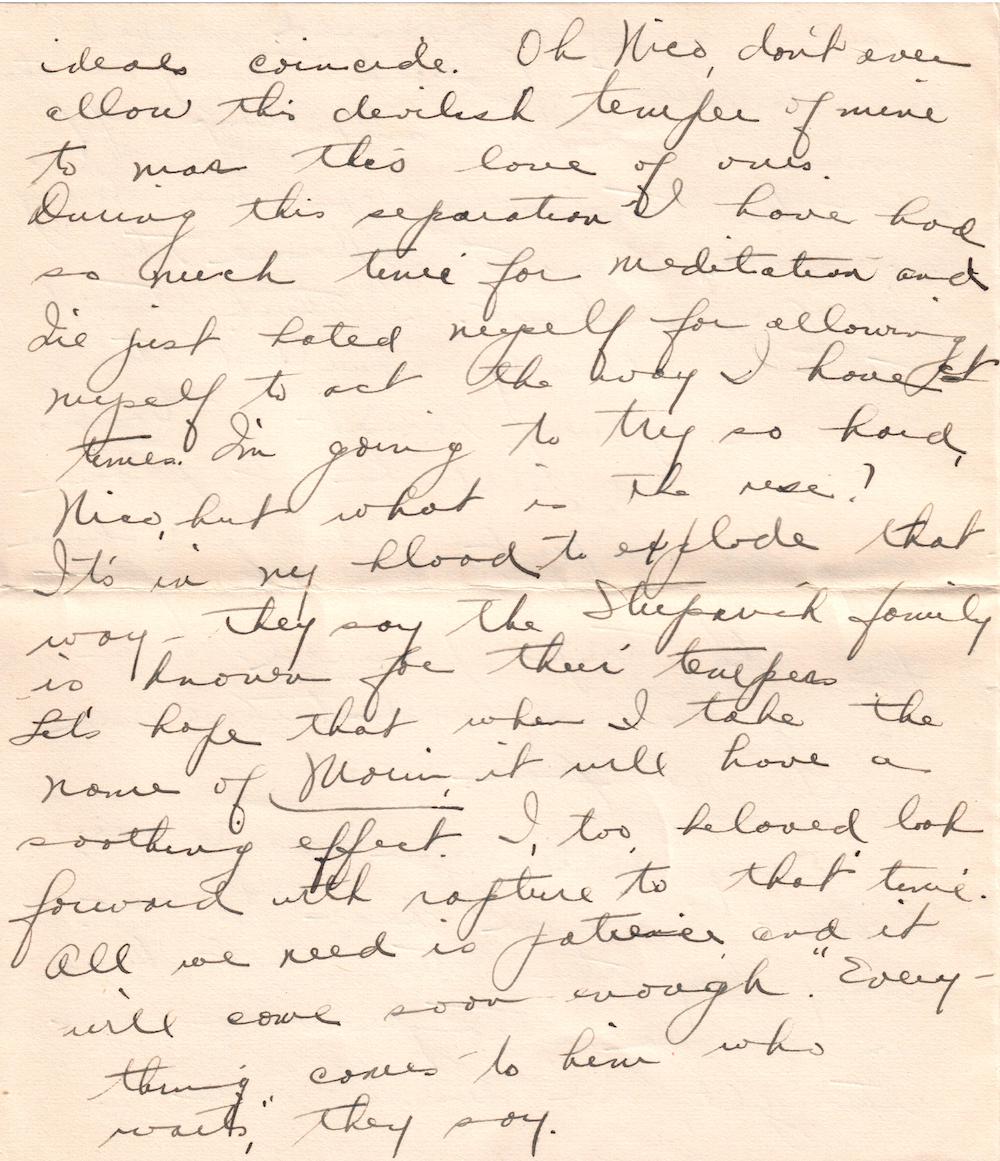 ideals coincide. Oh Nico, don't ever
allow this devilish temper of mine
to mar this love of ours.
During this separation I have had
so much time for meditation and
I've just hated myself for allowing
myself to act the way I have at
times. I'm going to try so hard,
Nico, but what is the use?
It's in my blood to explode that
way - they say the family
is known for their tempers
Let's hope that when I take the
name of Morin, it will have a
soothing effect. I, too, beloved, look
forward with rapture to that time.
All we need is patience and it
will come soon enough. "Every-
thing comes to him who
waits," they say.